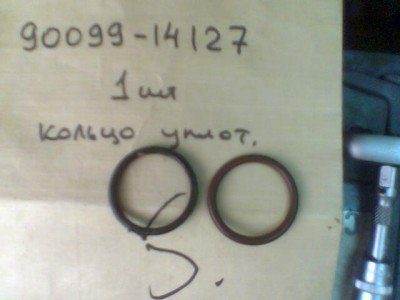 90099-14127
1 шт
кольцо уплот.
5.